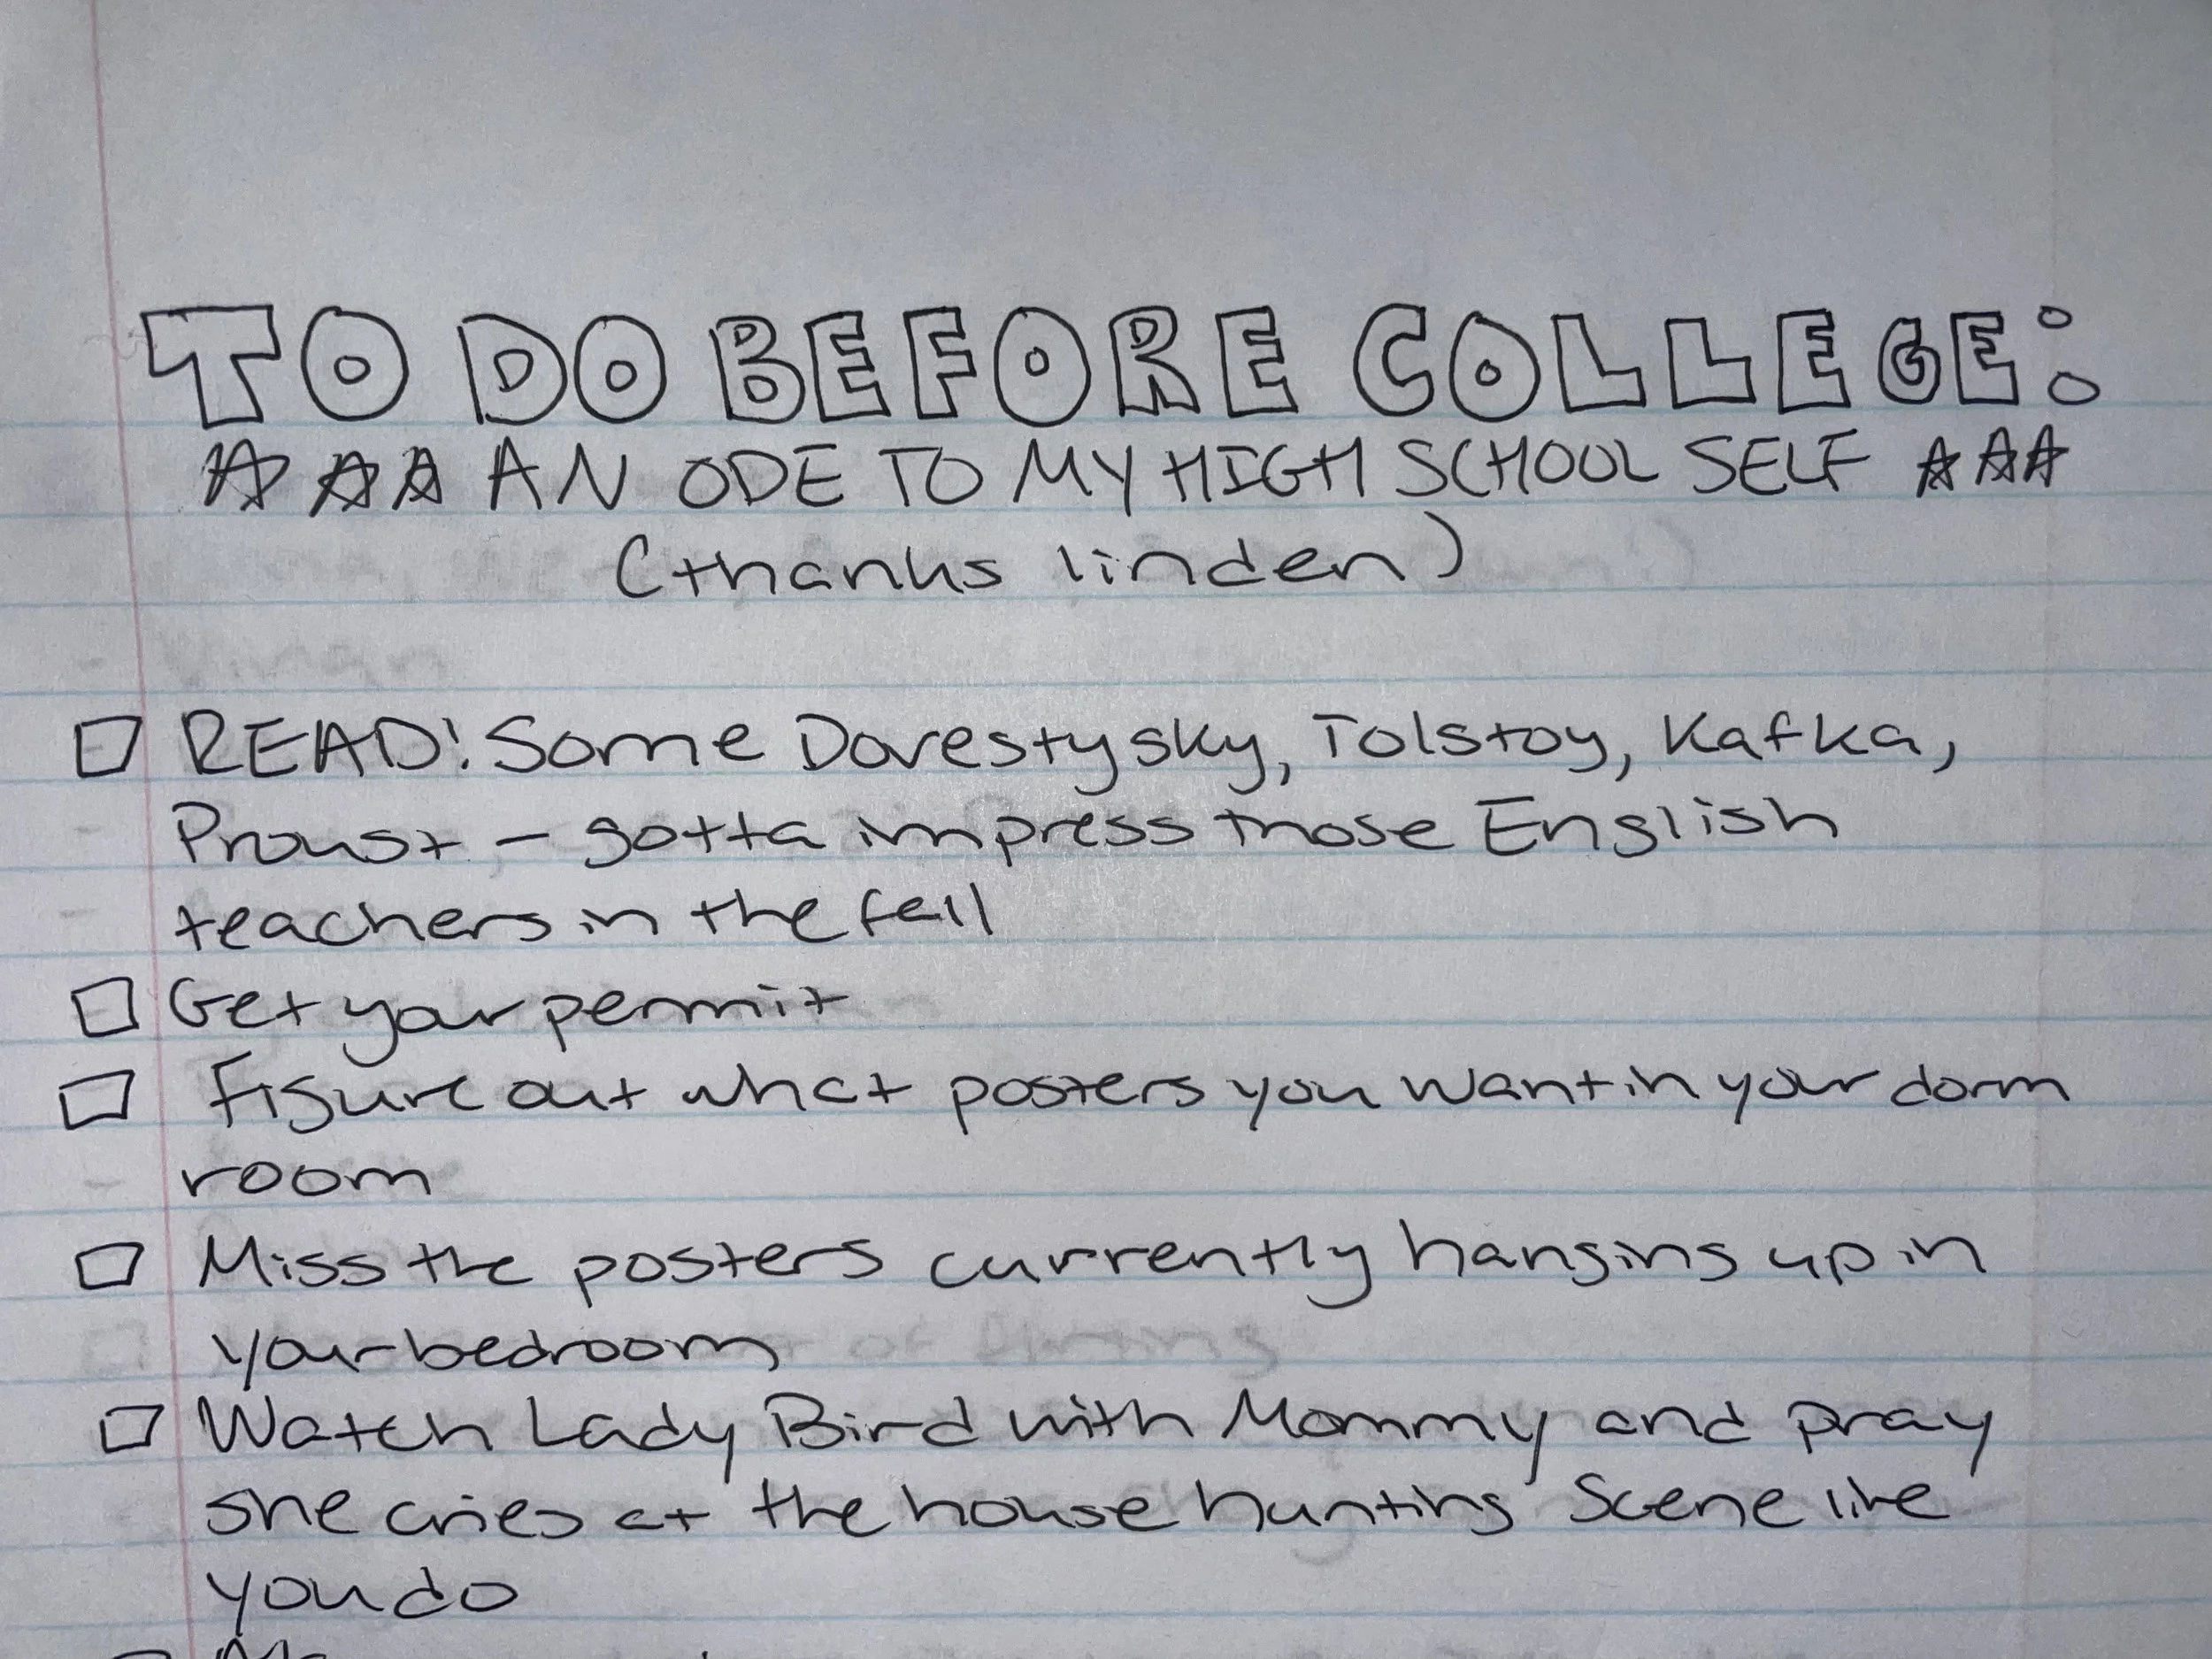 TO DO BEFORE COLLEGE:
☆☆☆ AN ODE TO MY HIGH SCHOOL SELF ☆☆☆
(thanks linden)
□ READ! Some Dovestysky, Tolstoy, Kafka,
Proust, — gotta impress those English
teachers in the fall
□ Get your permit
□ Figure out what posters you want in your dorm
room
□ Miss the posters currently hanging up in
your bedroom
□ Watch Lady Bird with Mommy and pray
she cries at the house hunting scene like
you do